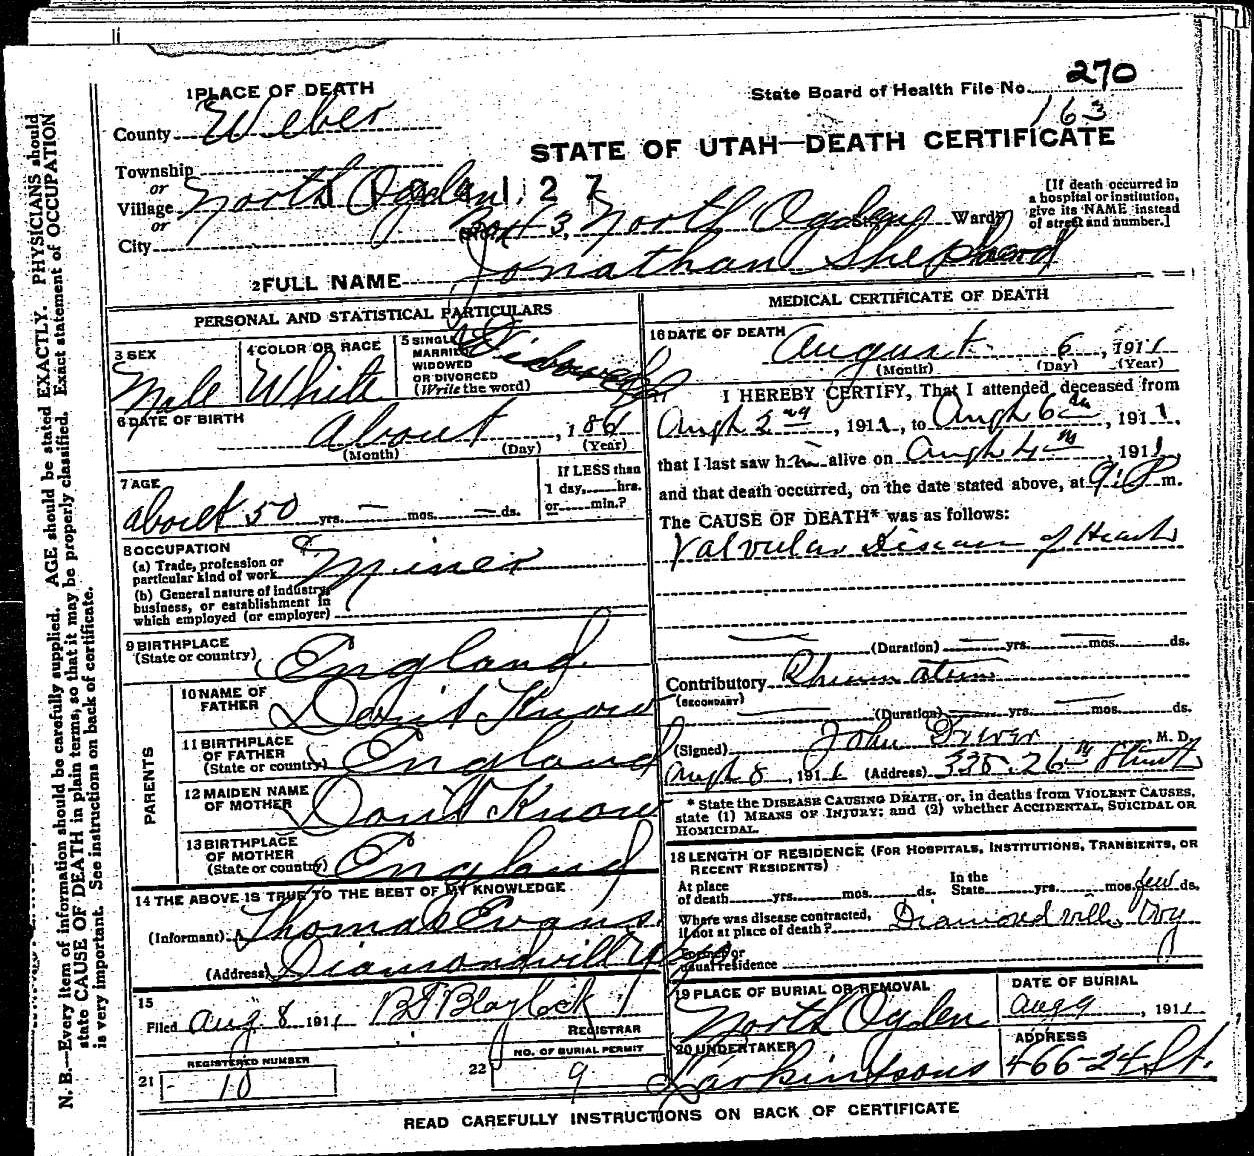 270
State Board of Health File No.
163
1 PLACE OF DEATH
County Weber
STATE OF UTAH—DEATH CERTIFICATE
Township
or
Village North Ogden
127
or
City
(No. Box 43, North Ogden St.; Ward)
[If death occurred in a hospital or institution, give its NAME instead of street and number.]
2 FULL NAME Jonathan Shephard
PERSONAL AND STATISTICAL PARTICULARS
3 SEX
Male
4 COLOR OR RACE
White
5 SINGLE
MARRIED
WIDOWED
OR DIVORCED
(Write the word)
Widowed
6 DATE OF BIRTH
About , 1861
(Month) (Day) (Year)
7 AGE
about 50 yrs. — mos. — ds.
If LESS than
1 day, hrs.
or min.?
8 OCCUPATION
(a) Trade, profession or
particular kind of work Miner
(b) General nature of industry,
business, or establishment in
which employed (or employer)
9 BIRTHPLACE
(State or country) England
PARENTS
10 NAME OF
FATHER Don't Know
11 BIRTHPLACE
OF FATHER
(State or country) England
12 MAIDEN NAME
OF MOTHER Don't Know
13 BIRTHPLACE
OF MOTHER
(State or country) England
14 THE ABOVE IS TRUE TO THE BEST OF MY KNOWLEDGE
(Informant) Thomas Evans
(Address) Diamondville Wyo
15
Filed Aug 8 1911 Blaylock
REGISTRAR
REGISTERED NUMBER
21 10
NO. OF BURIAL PERMIT
22 9
MEDICAL CERTIFICATE OF DEATH
16 DATE OF DEATH
August 6, 1911
(Month) (Day) (Year)
I HEREBY CERTIFY, That I attended deceased from
Augh 2nd, 1911, to Augh 6th, 1911,
that I last saw him alive on Augh 4th, 1911,
and that death occurred, on the date stated above, at 9 P m.
The CAUSE OF DEATH* was as follows:
Valvular Disease of Heart
— (Duration) — yrs. — mos. ds.
Contributory Rhumatism
(SECONDARY)
— (Duration) — yrs. — mos. ds.
(Signed) John Driver M. D.
Augh 8, 1911 (Address) 335. 26th Street
* State the DISEASE CAUSING DEATH, or, in deaths from VIOLENT CAUSES,
state (1) MEANS OF INJURY; and (2) whether ACCIDENTAL, SUICIDAL OR
HOMICIDAL.
18 LENGTH OF RESIDENCE (FOR HOSPITALS, INSTITUTIONS, TRANSIENTS, OR
RECENT RESIDENTS)
At place
of death yrs. mos. ds.
In the
State yrs. mos. few ds.
Where was disease contracted,
if not at place of death? Diamondville Wy
Former or
usual residence
19 PLACE OF BURIAL OR REMOVAL
North Ogden
DATE OF BURIAL
Aug 9, 1911
20 UNDERTAKER
Larkin & sons
ADDRESS
466-24 St.
READ CAREFULLY INSTRUCTIONS ON BACK OF CERTIFICATE
N. B.—Every item of information should be carefully supplied. AGE should be stated EXACTLY. PHYSICIANS should
state CAUSE OF DEATH in plain terms, so that it may be properly classified. Exact statement of OCCUPATION
is very important. See instructions on back of certificate.